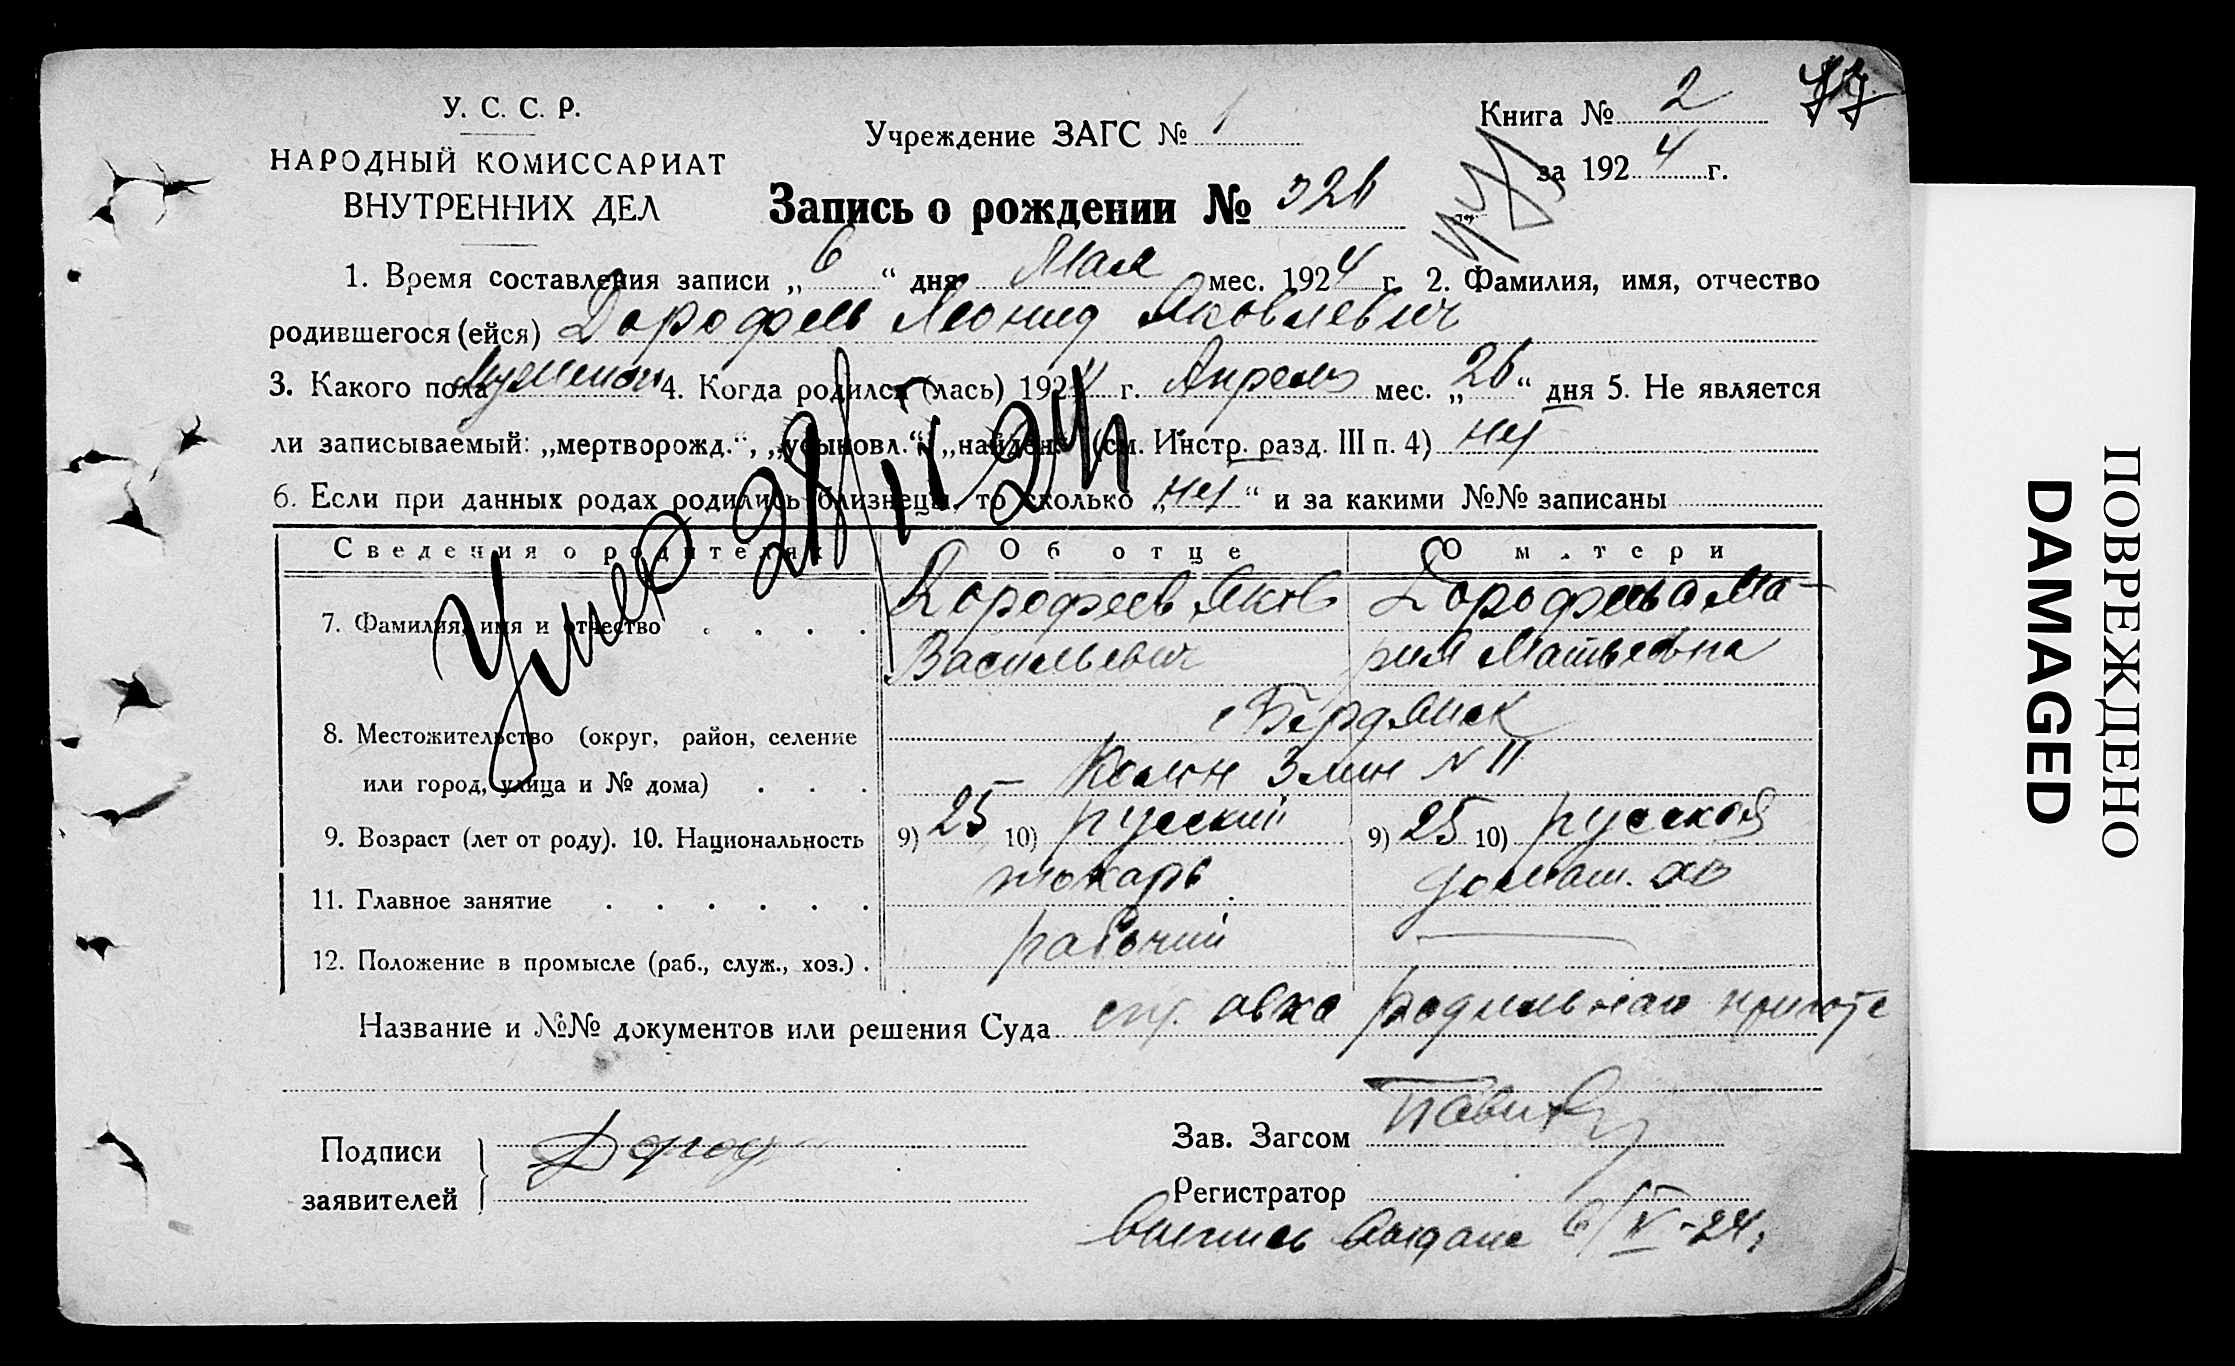 У. С. С. Р.
НАРОДНЫЙ КОМИССАРИАТ
ВНУТРЕННИХ ДЕЛ
Учреждение ЗАГС № 1
Книга № 2
за 1924 г.
Запись о рождении № 326
1. Время составления записи „6“ дня Мая мес. 1924 г. 2. Фамилия, имя, отчество
родившегося (ейся) Дорофеев Леонид Яковлевич
3. Какого пола Мужеский 4. Когда родился (лась) 1924 г. Апрель мес. „26“ дня 5. Не является
ли записываемый: „мертворожд.“, „усыновл.“, „найден.“ (см. Инстр. разд. III п. 4) нет
6. Если при данных родах родились близнецы, то сколько „нет“ и за какими №№ записаны
Умер 28/
24
Сведения о родителях Об отце О матери
7. Фамилия, имя и отчество . . . . Дорофеев Яков Дорофеева Ма-
Васильевич рия Матвеевна
8. Местожительство (округ, район, селение г Бердянск
или город, улица и № дома) . . . Колон 3 лин N 11
9. Возраст (лет от роду). 10. Национальность 9) 25 10) русский 9) 25 10) русская
11. Главное занятие . . . . . . токарь домаш. хоз
12. Положение в промысле (раб., служ., хоз.) . рабочий —
Название и №№ документов или решения Суда справка родильного приюта
Подписи
заявителей
Дороф
Зав. Загсом
Регистратор
Выпись выдана 6/V-24.
ПОВРЕЖДЕНО
DAMAGED